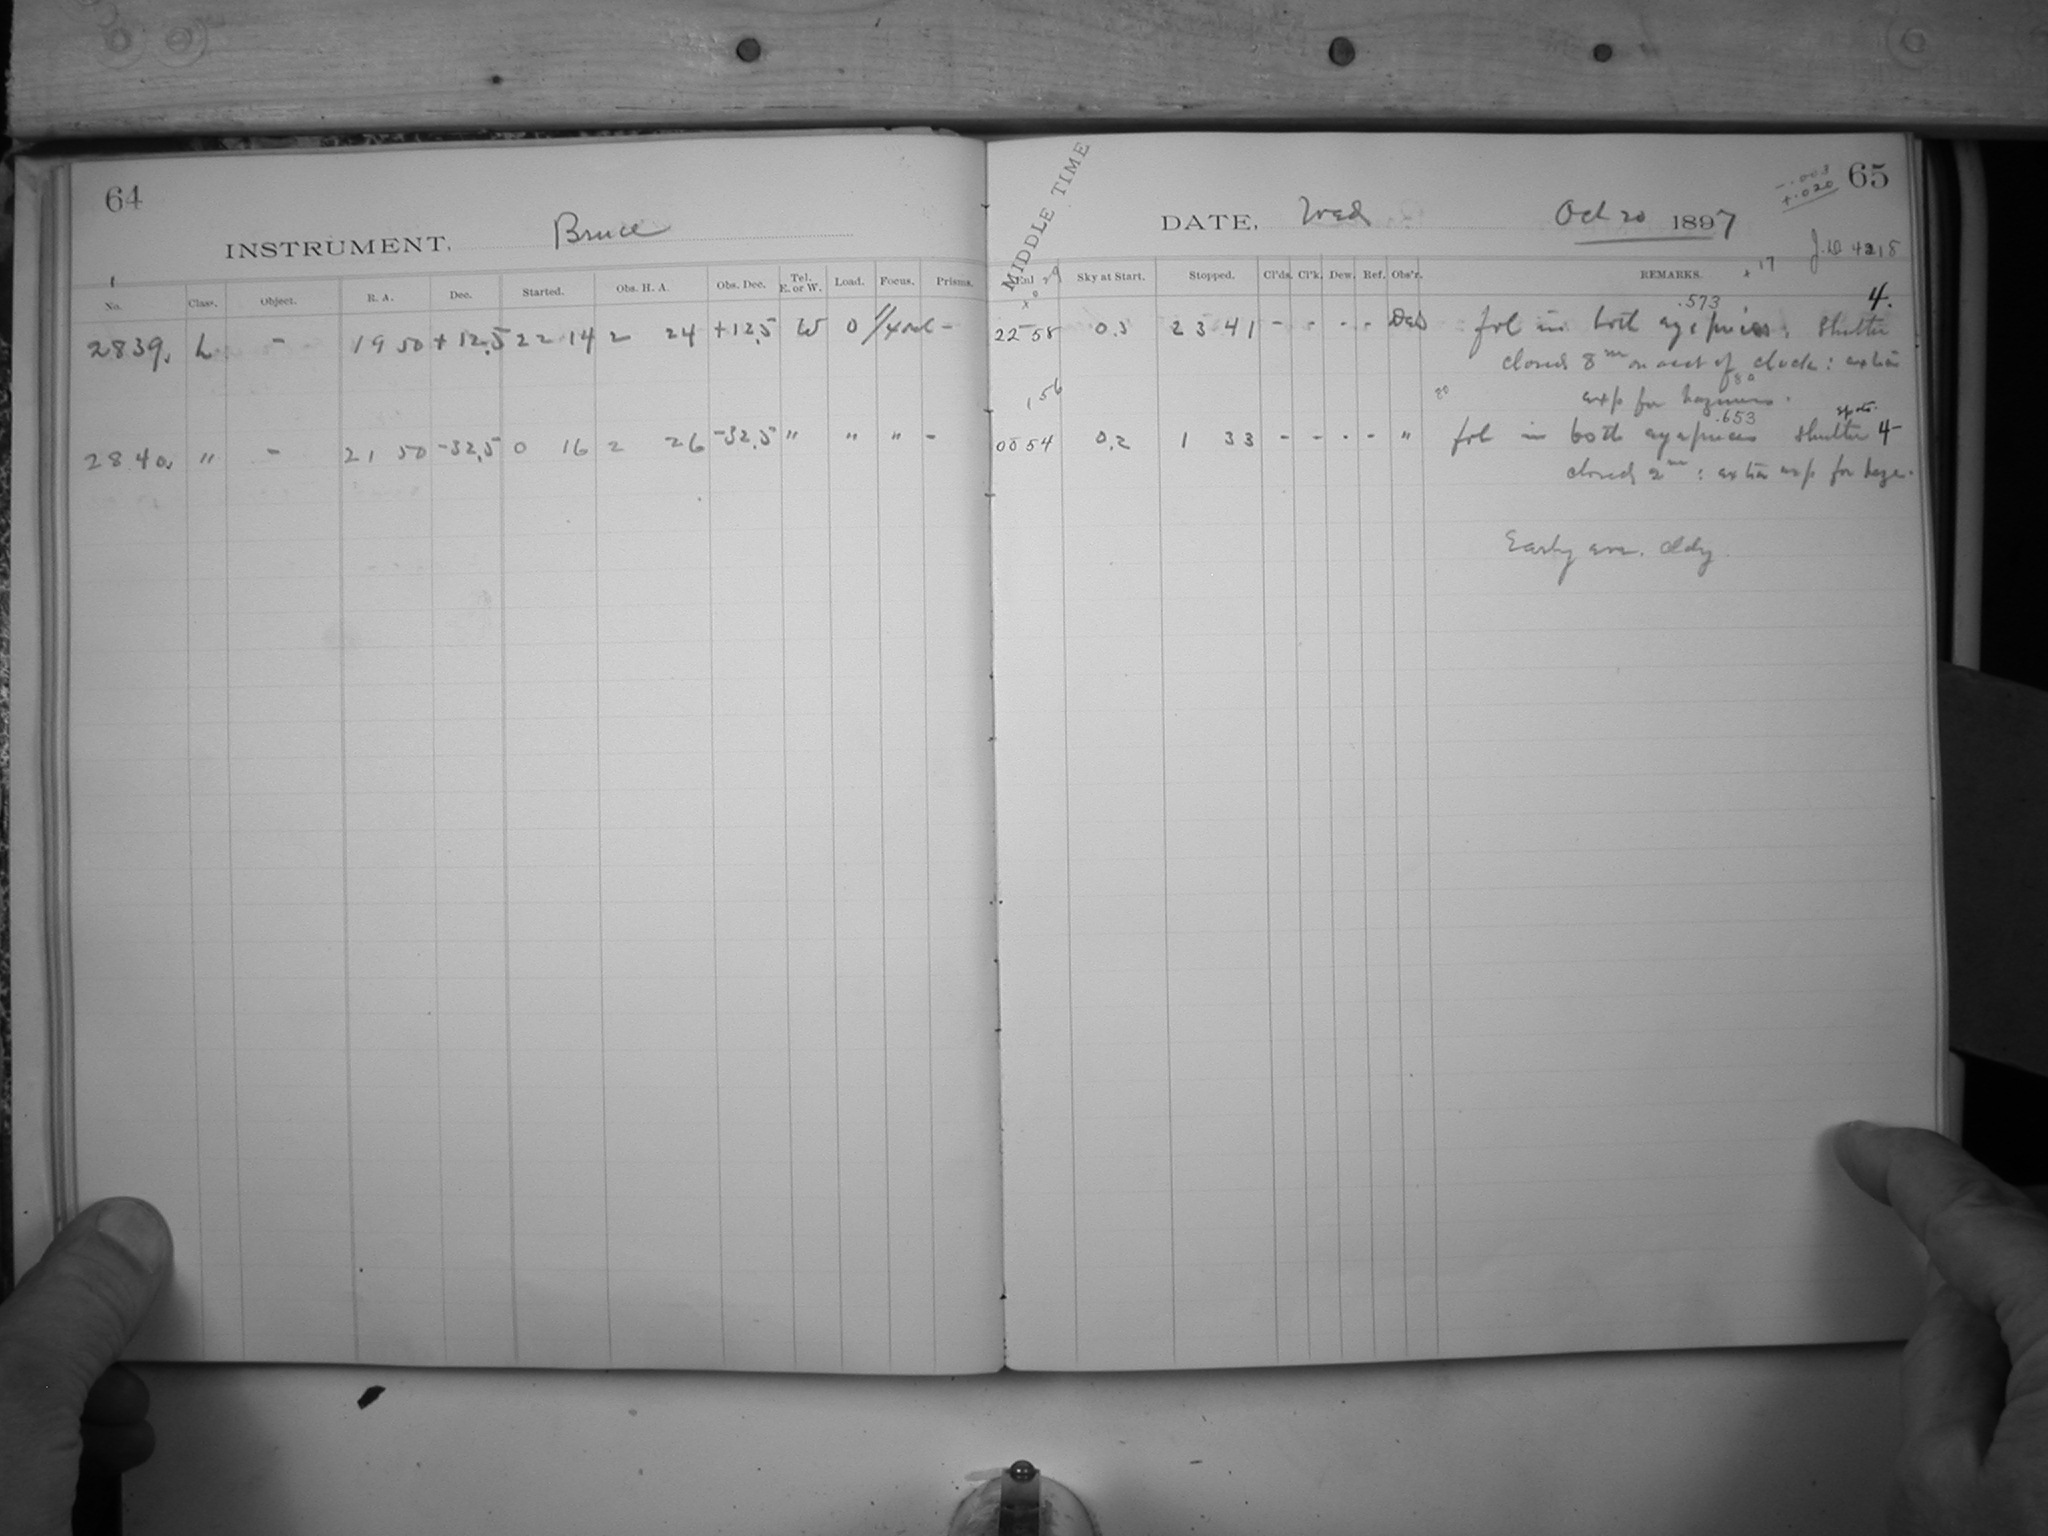 64
INSTRUMENT, Bruce
No. Class. Object. R. A. Dec. Started. Obs. H. A. Obs. Dec. Tel. E. or W. Load. Focus. Prisms.
2839. L - 19 50 +12.5 22 14 2 24 +12.5 W 0 -
2840. " - 21 50 -32.5 0 16 2 26 -32.5 " " " -
65
-.003
+.020
MIDDLE TIME
DATE, Wed Oct 20 1897
J.D. 4218
Sky at Start. Stopped. Cl'ds. Cl'k. Dew. Ref. Obs'r. REMARKS. +17
.573 4.
22 58 0.3 23 41 - - - - fol in both eyepieces. Shutter
closed 8m on acct of clock: extra
exp for haziness.
.653
00 54 0.2 1 33 - - - - " fol in both eyepieces Shutter 4
closed 2m: extra exp for haze.
Early eve. cldy.